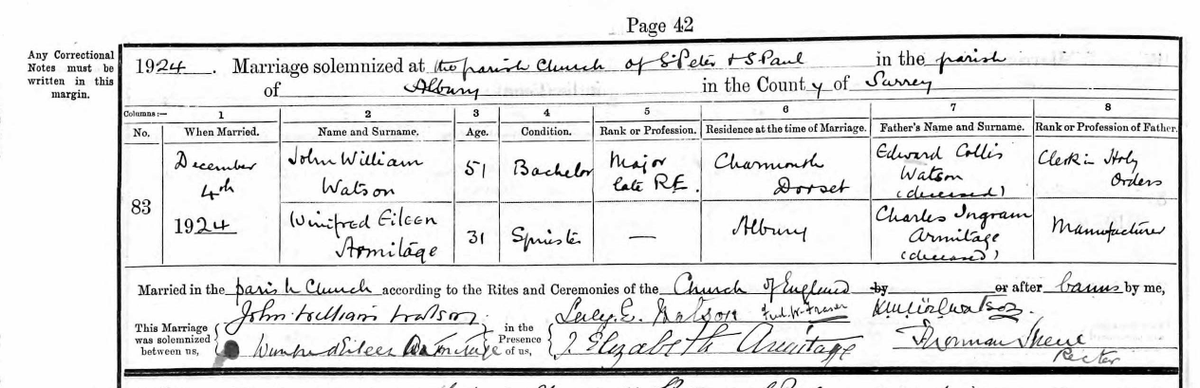 Page 42
Any Correctional
Notes must be
written in this
margin.
1924. Marriage solemnized at the parish Church of St Peter & St Paul in the parish
of Albury in the County of Surrey
Columns:— 1 2 3 4 5 6 7 8
No. When Married. Name and Surname. Age. Condition. Rank or Profession. Residence at the time of Marriage. Father's Name and Surname. Rank or Profession of Father.
83
December
4th
1924
John William
Watson
51
Bachelor
Major
late R.E.
Charmouth
Dorset
Edward Collis
Watson
(deceased)
Clerk in Holy
Orders
Winifred Eileen
Armitage
31
Spinster
—
Albury
Charles Ingram
Armitage
(deceased)
Manufacturer
Married in the parish Church according to the Rites and Ceremonies of the Church of England by or after banns by me,
This Marriage
was solemnized
between us,
John William Watson
Winifred Eileen Armitage
in the
Presence
of us,
Lucy E. Watson
J. Elizabeth Armitage
Watson
Rector